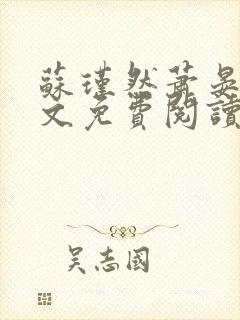 蘇瑾然蕭晏
文免費閱讀
吴志國